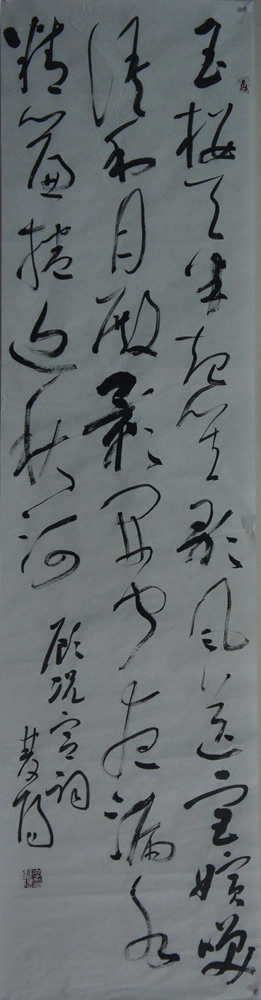 玉楼天半起笙歌风送宫嫔笑
语和月殿影开闻夜漏水
精帘捲近秋河
顾况宫词